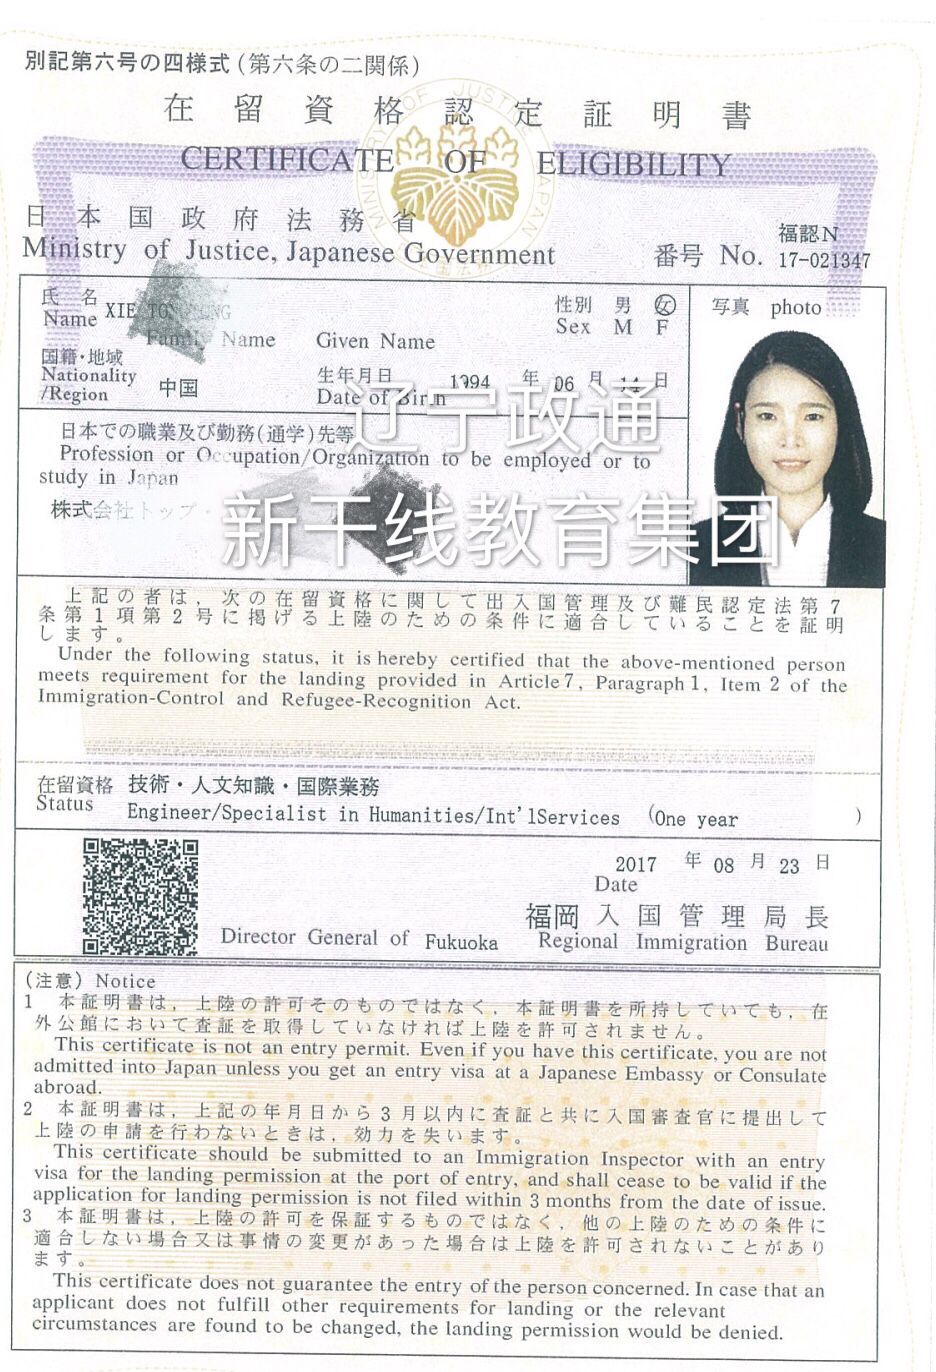 別記第六号の四様式(第六条の二関係)
在留資格認定証明書
MINISTRY OF JUSTICE JAPAN
CERTIFICATE OF ELIGIBILITY
日本国政府法務省
Ministry of Justice, Japanese Government
福認N
番号 No. 17-021347
氏 名
Name XIE
Family Name Given Name
性別 男 女
Sex M F
写真 photo
国籍・地域
Nationality
/Region 中国
生年月日 1994 年 06 月 14 日
Date of Birth
辽宁政通
日本での職業及び勤務(通学)先等
Profession or Occupation/Organization to be employed or to
study in Japan
株式会社トップ・
新干线教育集团
上記の者は、次の在留資格に関して出入国管理及び難民認定法第7
条第1項第2号に掲げる上陸のための条件に適合していることを証明
します。
Under the following status, it is hereby certified that the above-mentioned person
meets requirement for the landing provided in Article 7, Paragraph 1, Item 2 of the
Immigration-Control and Refugee-Recognition Act.
在留資格 技術・人文知識・国際業務
Status Engineer/Specialist in Humanities/Int'lServices (One year )
2017 年 08 月 23 日
Date
福岡 入国管理局長
Director General of Fukuoka Regional Immigration Bureau
(注意) Notice
1 本証明書は、上陸の許可そのものではなく、本証明書を所持していても、在
外公館において査証を取得していなければ上陸を許可されません。
This certificate is not an entry permit. Even if you have this certificate, you are not
admitted into Japan unless you get an entry visa at a Japanese Embassy or Consulate
abroad.
2 本証明書は、上記の年月日から3月以内に査証と共に入国審査官に提出して
上陸の申請を行わないときは、効力を失います。
This certificate should be submitted to an Immigration Inspector with an entry
visa for the landing permission at the port of entry, and shall cease to be valid if the
application for landing permission is not filed within 3 months from the date of issue.
3 本証明書は、上陸の許可を保証するものではなく、他の上陸のための条件に
適合しない場合又は事情の変更があった場合は上陸を許可されないことがあり
ます。
This certificate does not guarantee the entry of the person concerned. In case that an
applicant does not fulfill other requirements for landing or the relevant
circumstances are found to be changed, the landing permission would be denied.